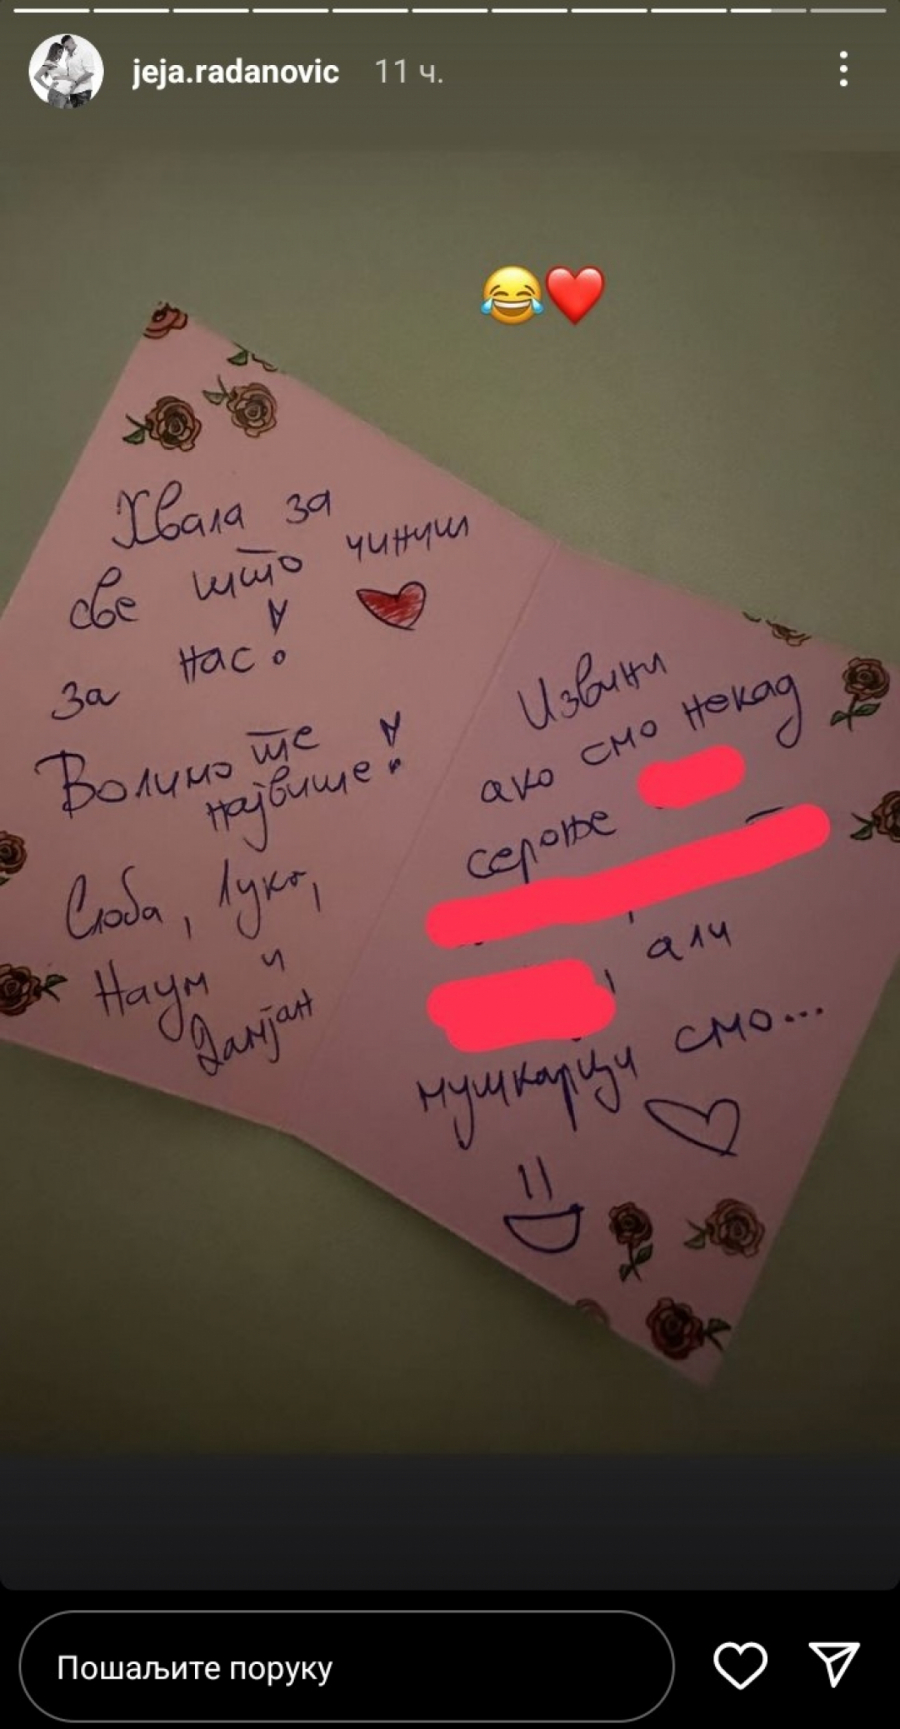 jeja.radanovic 11 ч.
Хвала за
све што чиниш
за нас!
Волимо те
највише!
Слоба, Лука,
Наум и
Дамјан
Извини
ако смо некад
сероње
али
мушкарци смо...
Пошаљите поруку